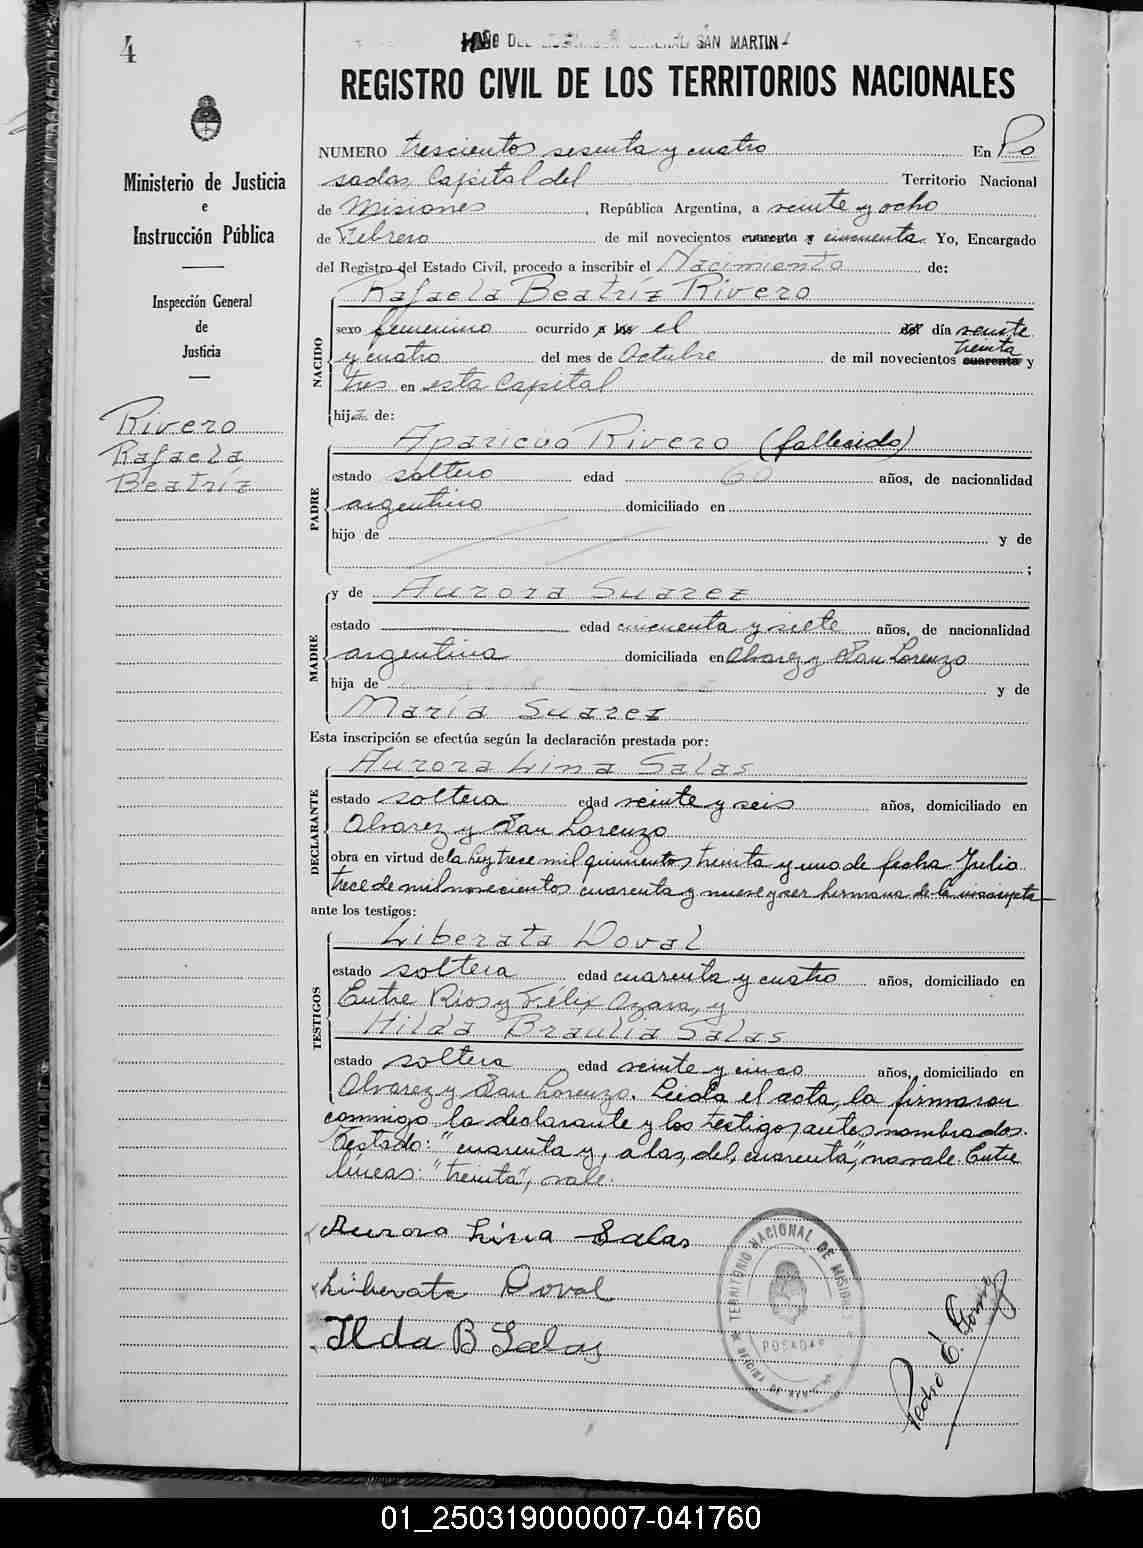 4
AÑO DEL LIBERTADOR GENERAL SAN MARTIN
REGISTRO CIVIL DE LOS TERRITORIOS NACIONALES
Ministerio de Justicia
e
Instrucción Pública
Inspección General
de
Justicia
Rivero
Rafaela
Beatríz
NUMERO trescientos sesenta y cuatro En Po
sadas, Capital del Territorio Nacional
de Misiones, República Argentina, a veinte y ocho
de Febrero de mil novecientos cuarenta y cincuenta. Yo, Encargado
del Registro del Estado Civil, procedo a inscribir el Nacimiento de:
NACIDO
Rafaela Beatríz Rivero
sexo femenino ocurrido a las el del día veinte
y cuatro del mes de Octubre de mil novecientos cuarenta treinta y
tres en esta Capital
hija de:
PADRE
Aparicio Rivero (fallecido)
estado soltero edad 60 años, de nacionalidad
argentino domiciliado en
hijo de y de
;
MADRE
y de Aurora Suarez
estado edad cincuenta y siete años, de nacionalidad
argentina domiciliada en Alvarez y San Lorenzo
hija de y de
María Suarez
Esta inscripción se efectúa según la declaración prestada por:
DECLARANTE
Aurora Lina Salas
estado soltera edad veinte y seis años, domiciliado en
Alvarez y San Lorenzo
obra en virtud de la ley trece mil quinientos treinta y uno de fecha Julio
trece de mil novecientos cuarenta y nueve y ser hermana de la inscripta
ante los testigos:
TESTIGOS
Liberata Doval
estado soltera edad cuarenta y cuatro años, domiciliado en
Entre Ríos y Félix Azara, y
Hilda Braulia Salas
estado soltera edad veinte y cinco años, domiciliado en
Alvarez y San Lorenzo. Leída el acta, la firmaron
conmigo la declarante y los testigos antes nombrados.
Testado: "cuarenta y, a las, del, cuarenta", no vale. Entre
líneas: "treinta", vale.
Aurora Lina Salas
Liberata Doval
Ilda B Salas
TERRITORIO NACIONAL DE MISIONES
POSADAS
Pedro E.
01_250319000007-041760